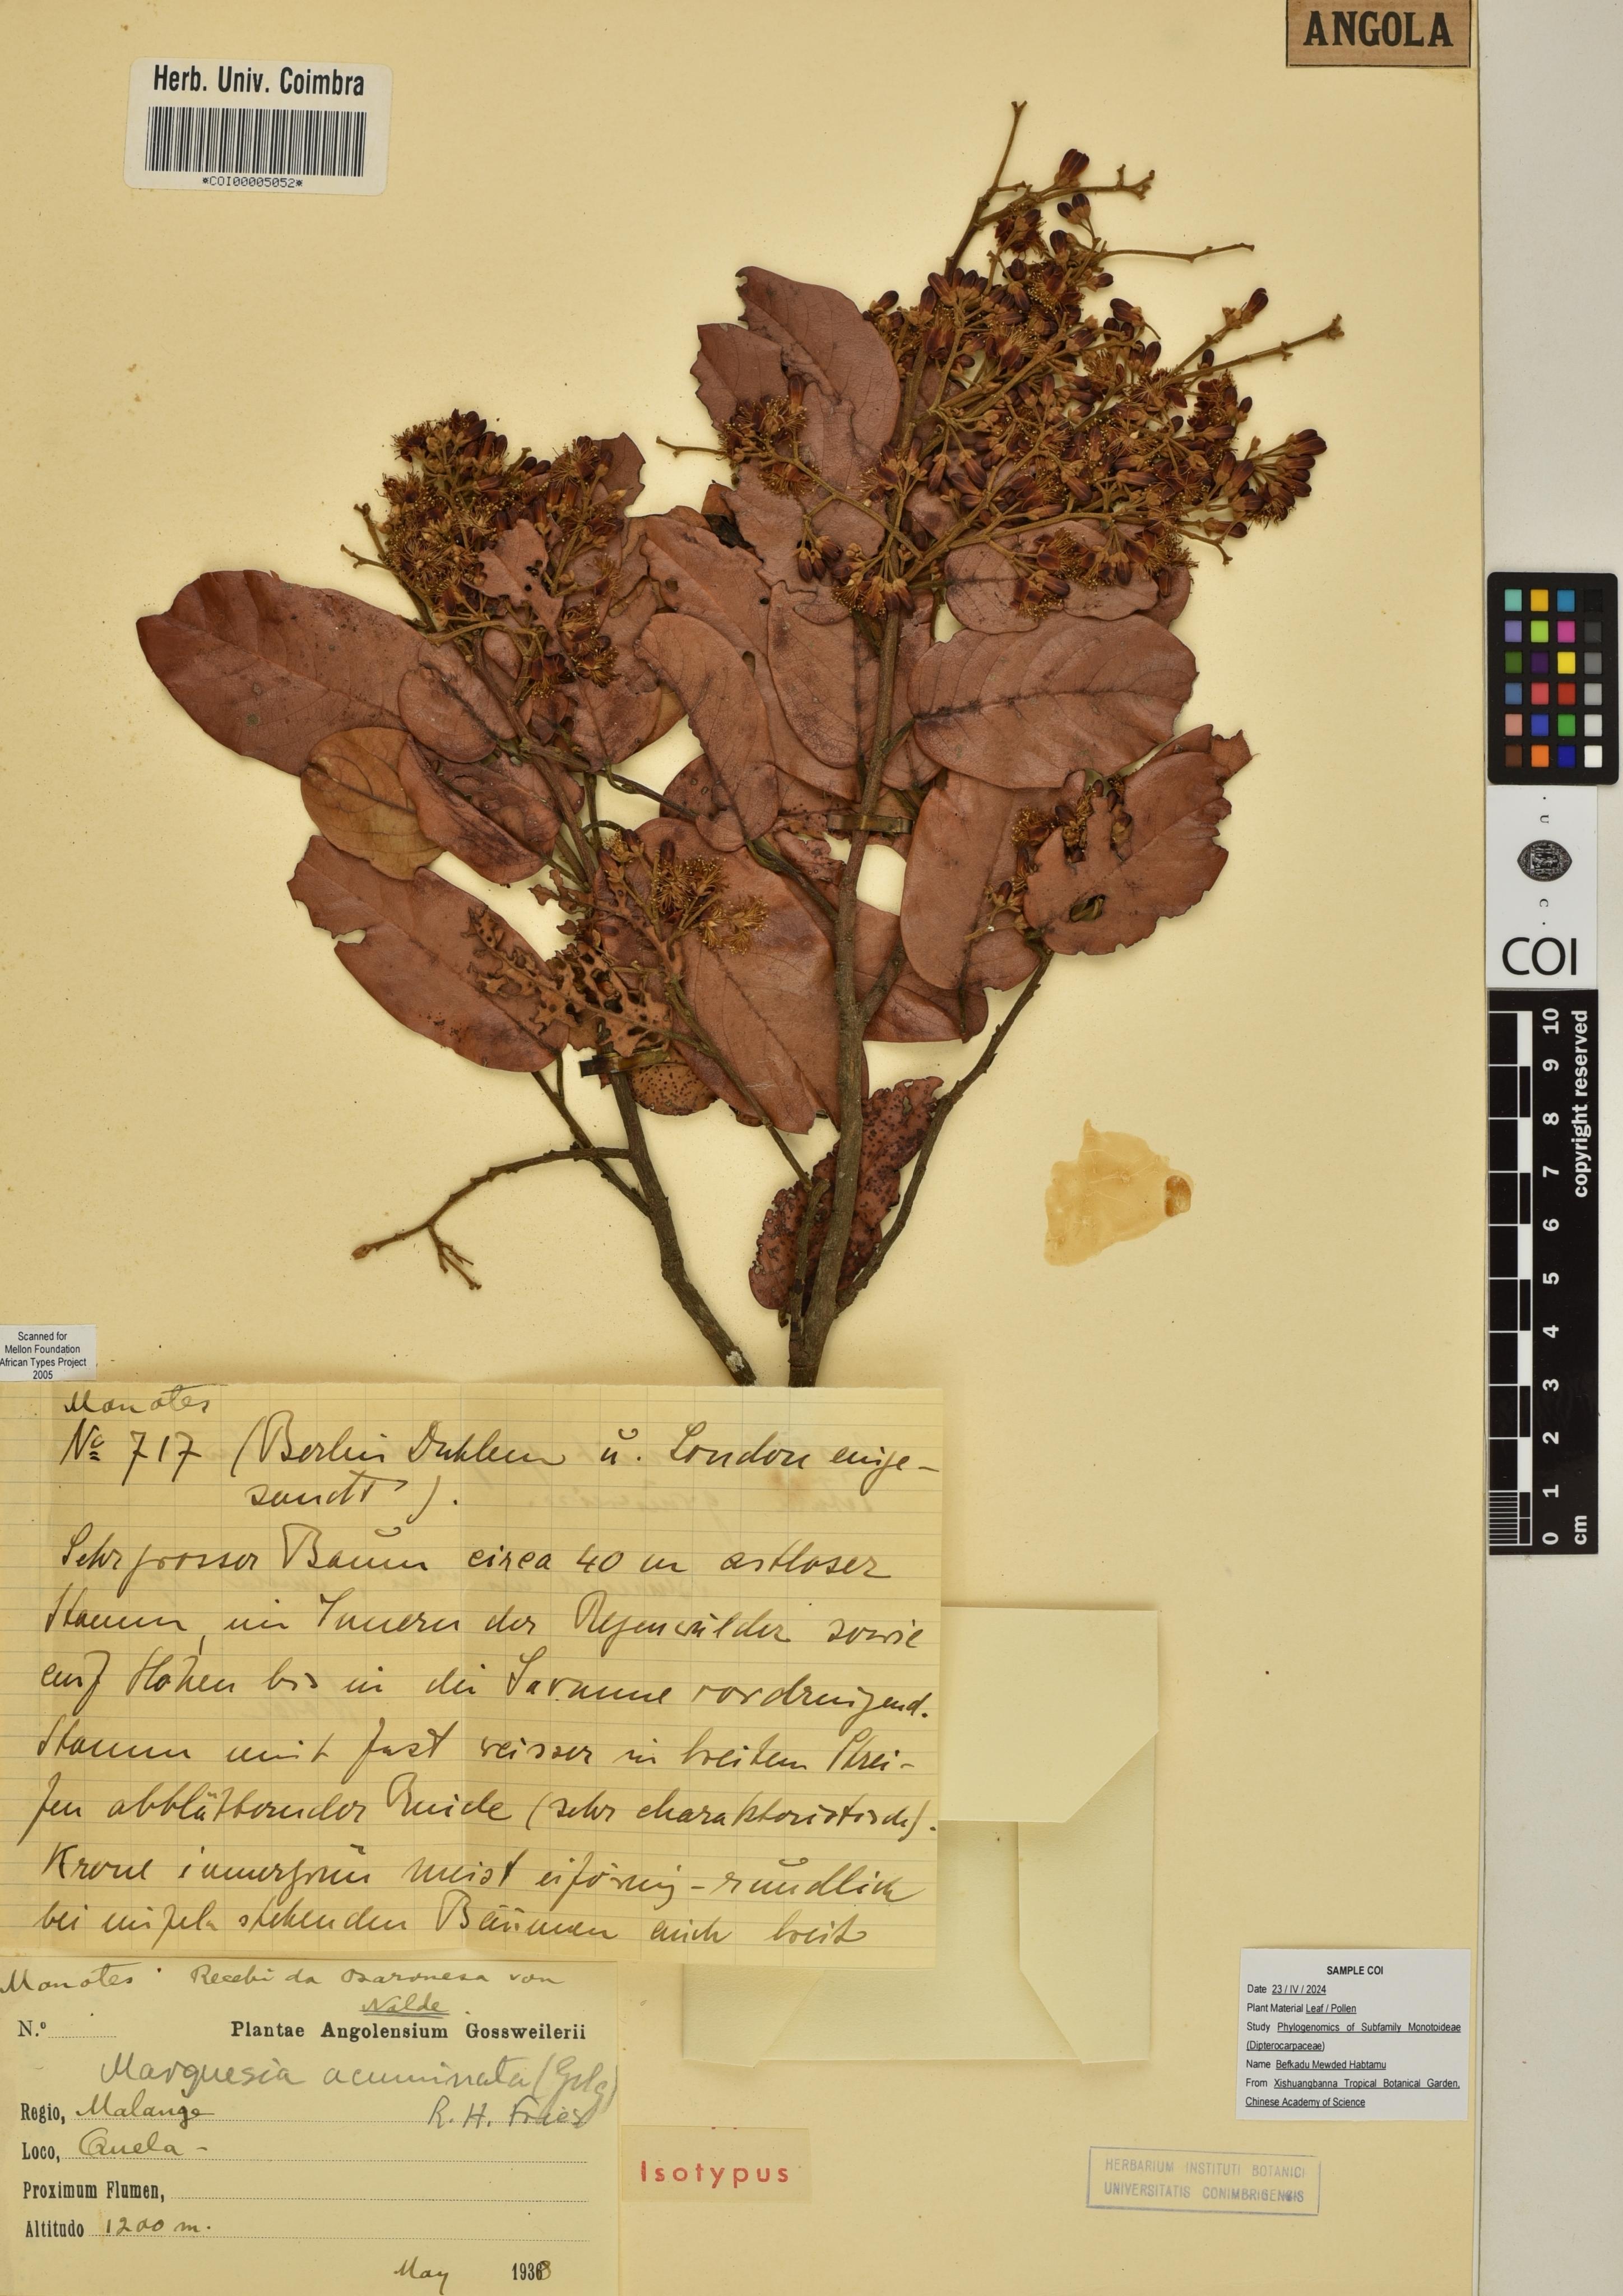 ANGOLA
Herb. Univ. Coimbra
*COI00005052*
U
C
COI
10
9
8
7
6
5
4
3
2
1
0
cm
copyright reserved
Scanned for
Mellon Foundation
African Types Project
2005
Monotes
No 717 (Berlin Dahlem u. London einge-
sandt).
Sehr grosser Baum circa 40 m astloser
Stamm, im Innern der Regenwälder sowie
auf Höhen bis in die Savanne vordringend.
Stamm mit fast weisser in breiten Strei-
fen abblätternder Rinde (sehr charakteristisch).
Krone immergrün meist eiförmig-rundlich
bei einzeln stehenden Bäumen auch breit
Monotes Recebi da Baronesa von
Nolde.
N.º
Plantae Angolensium Gossweilerii
Marquesia acuminata (Gilg)
R. H. Fries
Regio, Malange
Loco, Quela -
Proximum Flumen,
Altitudo 1200 m.
May 1938
Isotypus
SAMPLE COI
Date 23 / IV / 2024
Plant Material Leaf / Pollen
Study Phylogenomics of Subfamily Monotoideae
(Dipterocarpaceae)
Name Befkadu Mewded Habtamu
From Xishuangbanna Tropical Botanical Garden,
Chinese Academy of Science
HERBARIUM INSTITUTI BOTANICI
UNIVERSITATIS CONIMBRIGENSIS